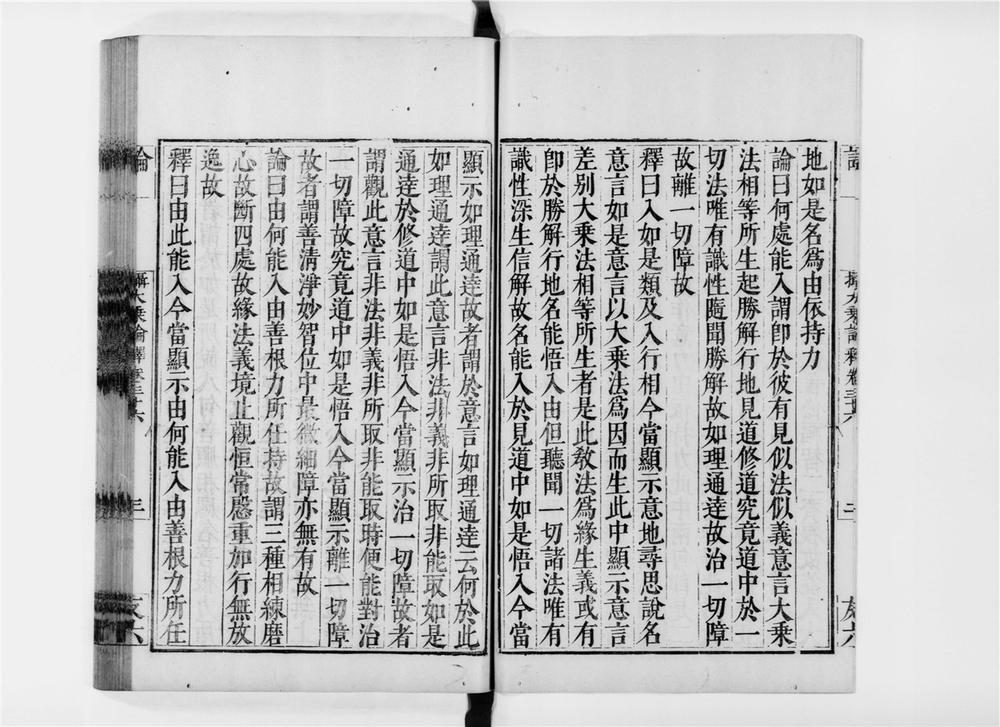 地如是名爲由依持力
論曰何處能入謂卽於彼有見似法似義意言大乗
法相等所生起勝解行地見道修道究竟道中於一
切法唯有識性隨聞勝解故如理通達故治一切障
故離一切障故
釋曰入如是類及入行相今當顯示意地尋思說名
意言如是意言以大乗法爲因而生此中顯示意言
差别大乗法相等所生者是此教法爲緣生義或有
卽於勝解行地名能悟入由但聽聞一切諸法唯有
識性深生信解故名能入於見道中如是悟入今當
顯示如理通達故者謂於意言如理通達云何於此
如理通達謂此意言非法非義非所取非能取如是
通達於修道中如是悟入今當顯示治一切障故者
謂觀此意言非法非義非所取非能取時便能對治
一切障故究竟道中如是悟入今當顯示離一切障
故者謂善清淨妙智位中最微細障亦無有故
論曰由何能入由善根力所任持故謂三種相練磨
心故斷四處故緣法義境止觀恒常慇重加行無放
逸故
釋曰由此能入今當顯示由何能入由善根力所任
論
攝大乗論釋卷三六
三